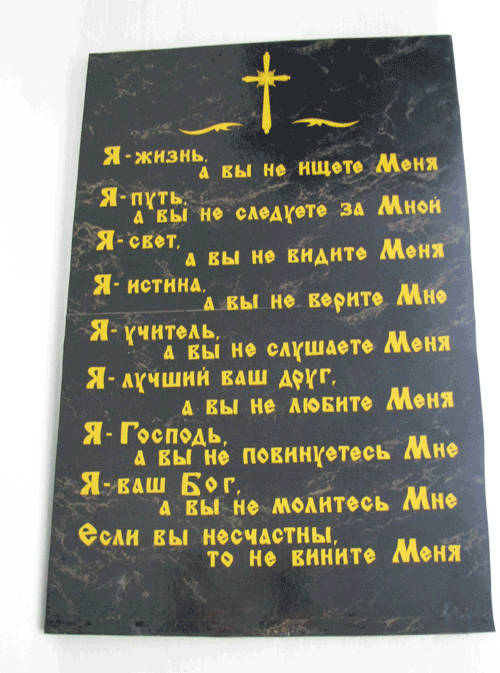 Я-жизнь,
а вы не ищете Меня
Я-путь,
а вы не следуете за Мной
Я-свет,
а вы не видите Меня
Я-истина,
а вы не верите Мне
Я-учитель,
а вы не слушаете Меня
Я-лучший ваш друг,
а вы не любите Меня
Я-Господь,
а вы не повинуетесь Мне
Я-ваш Бог,
а вы не молитесь Мне
Если вы несчастны,
то не вините Меня